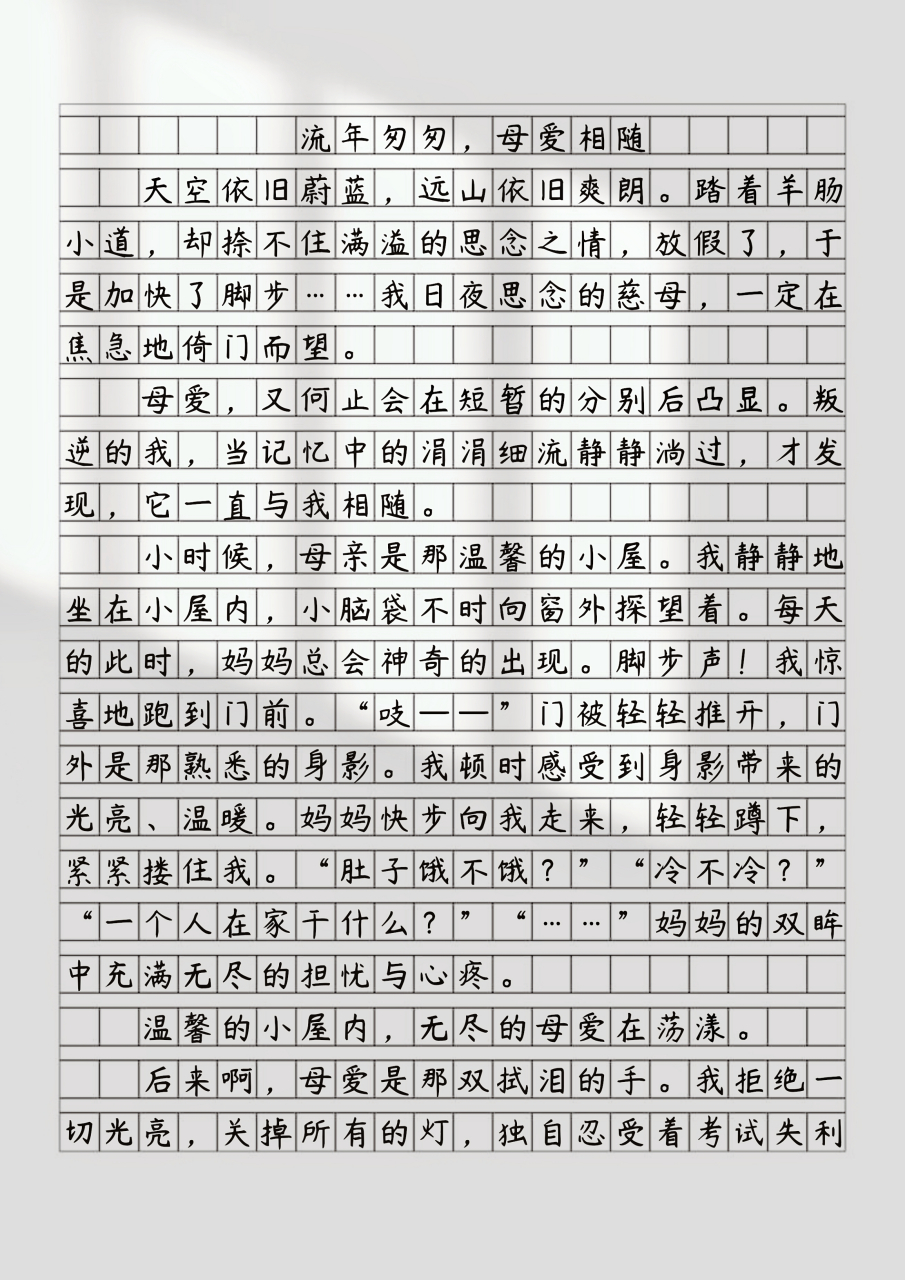 流年匆匆，母爱相随
天空依旧蔚蓝，远山依旧爽朗。踏着羊肠
小道，却捺不住满溢的思念之情，放假了，于
是加快了脚步……我日夜思念的慈母，一定在
焦急地倚门而望。
母爱，又何止会在短暂的分别后凸显。叛
逆的我，当记忆中的涓涓细流静静淌过，才发
现，它一直与我相随。
小时候，母亲是那温馨的小屋。我静静地
坐在小屋内，小脑袋不时向窗外探望着。每天
的此时，妈妈总会神奇的出现。脚步声！我惊
喜地跑到门前。“吱——”门被轻轻推开，门
外是那熟悉的身影。我顿时感受到身影带来的
光亮、温暖。妈妈快步向我走来，轻轻蹲下，
紧紧搂住我。“肚子饿不饿？”“冷不冷？”
“一个人在家干什么？”“……”妈妈的双眸
中充满无尽的担忧与心疼。
温馨的小屋内，无尽的母爱在荡漾。
后来啊，母爱是那双拭泪的手。我拒绝一
切光亮，关掉所有的灯，独自忍受着考试失利